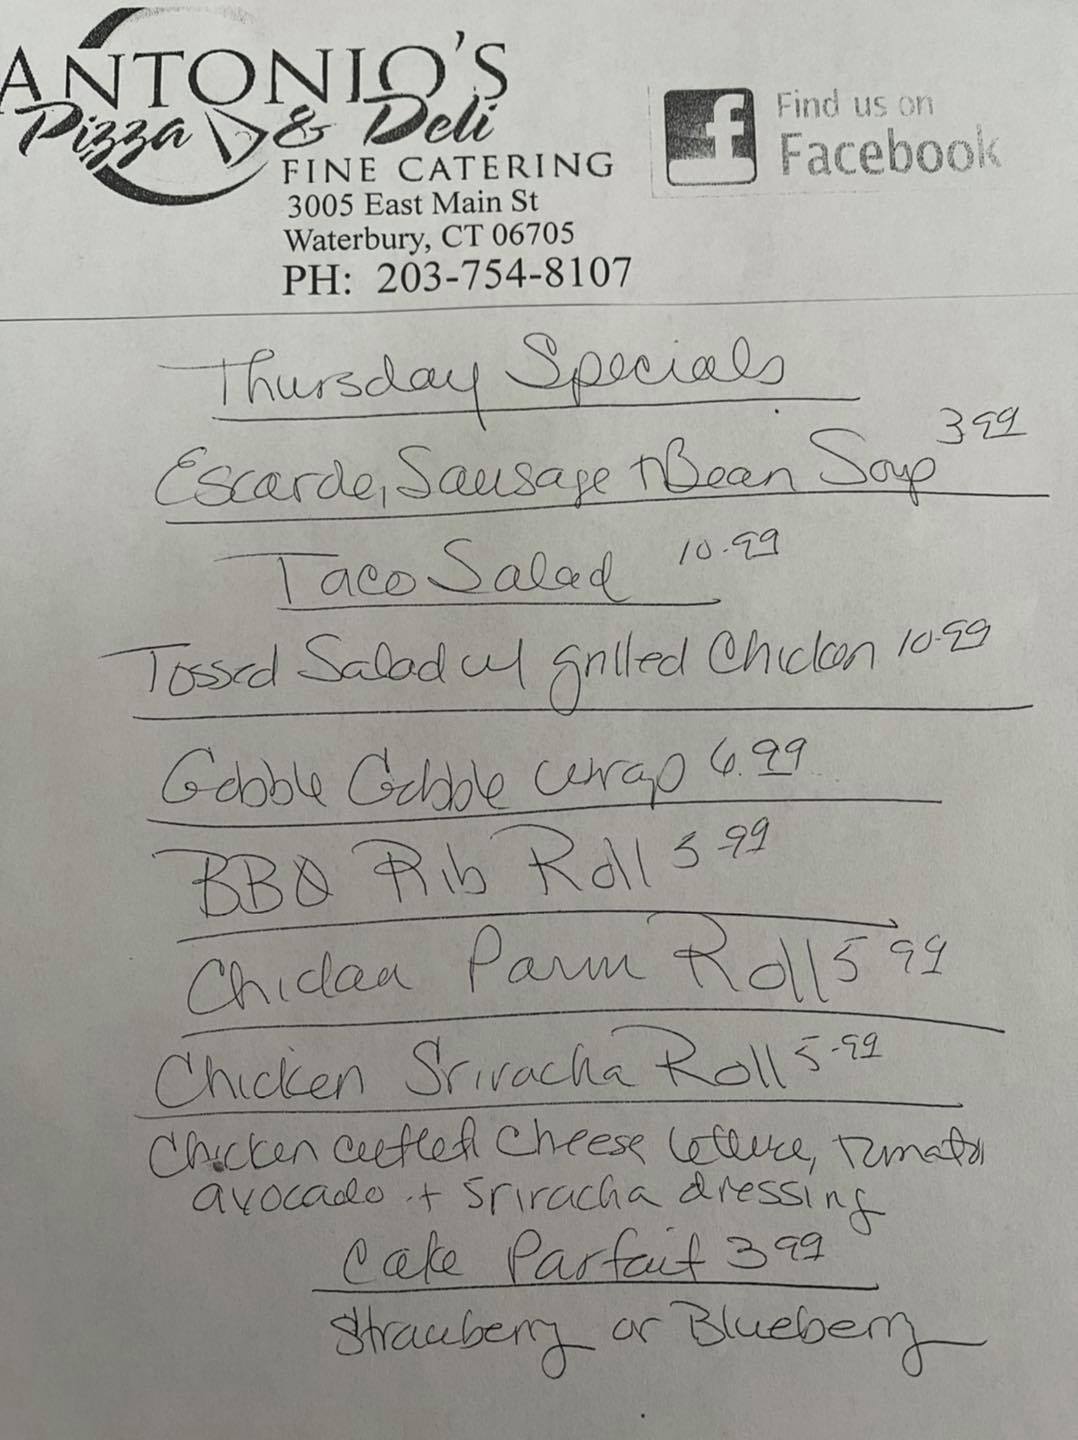 ANTONIO'S
Pizza & Deli
FINE CATERING
3005 East Main St
Waterbury, CT 06705
PH: 203-754-8107
Find us on
Facebook
Thursday Specials
Escarole, Sausage + Bean Soup 3.99
Taco Salad 10.99
Tossed Salad w/ grilled Chicken 10.99
Gobble Gobble wrap 6.99
BBQ Rib Roll 5.99
Chicken Parm Roll 5 99
Chicken Sriracha Roll 5.99
Chicken cutlet Cheese lettuce, tomato
avocado + sriracha dressing
Cake Parfait 3 99
Strawberry or Blueberry